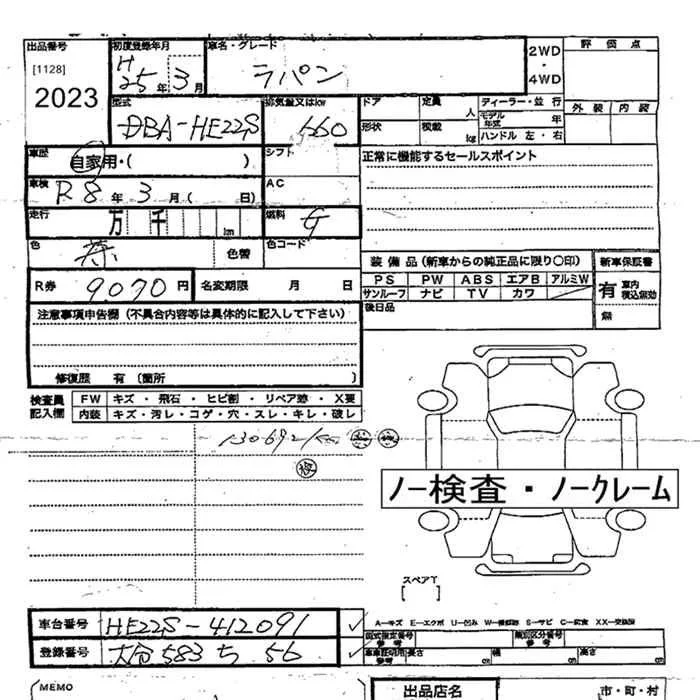 出品番号 初度登録年月 車名・グレード 2WD 評価点
[1128] H ・
2023 25年3月 ラパン 4WD
型式 排気量又はkw ドア 定員 人 ディーラー・並行 外装 内装
DBA-HE22S 660 形状 積載 kg モデル年式 年
ハンドル 左・右
車歴 シフト 正常に機能するセールスポイント
自家用・( )
車検 AC
R8年3月( 日)
走行 万 千 km 燃料 G
色 赤 色替 色コード
装備品(新車からの純正品に限り〇印) 新車保証書
R券 9070円 名変期限 月 日 PS PW ABS エアB アルミW 有 車内積込無効
サンルーフ ナビ TV カワ
注意事項申告欄(不具合内容等は具体的に記入して下さい) 後日品 無
修復歴 有 (箇所
検査員記入欄 FW キズ・飛石・ヒビ割・リペア跡・X要
内装 キズ・汚レ・コゲ・穴・スレ・キレ・破レ
130692km
ノー検査・ノークレーム
スペアT
[ ]
車台番号 HE22S-412091 A-キズ E-エクボ U-凹み W-補修跡 S-サビ C-腐食 XX-交換済
型式指定番号 参考 類別区分番号 参考
登録番号 大分 583 ち 56 車車証明用参考 長さ cm 幅 cm 高さ cm
MEMO 出品店名 市・町・村